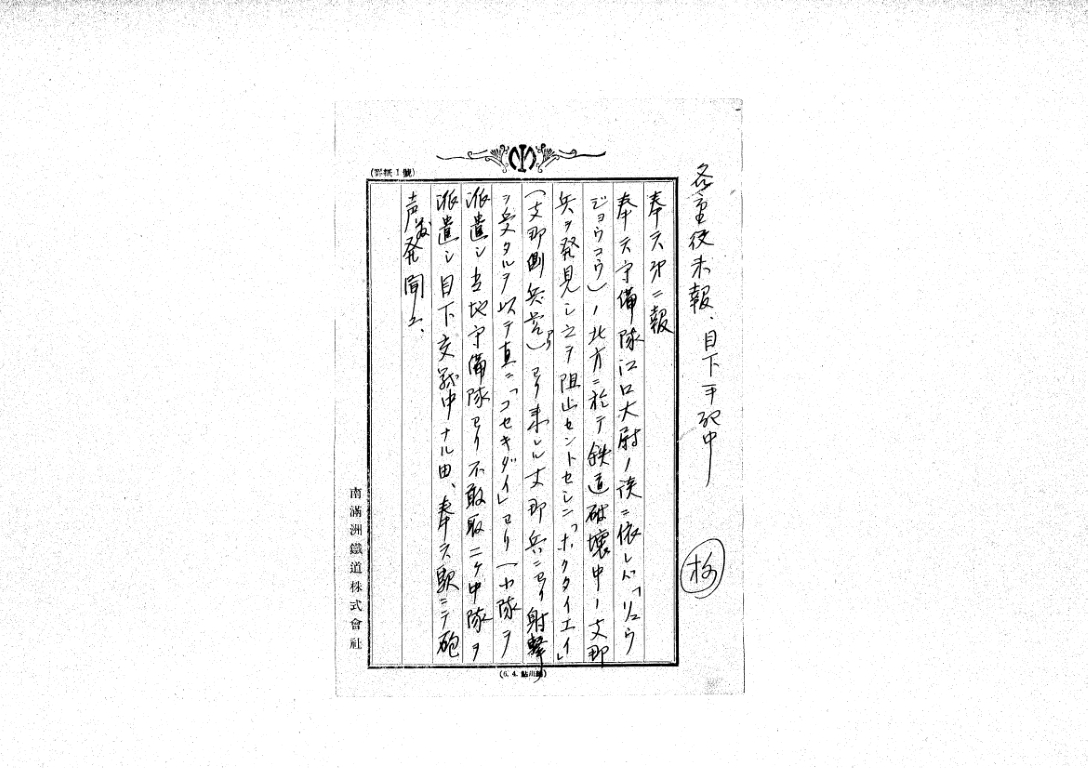 各重役未報、目下手配中
奉天第二報
奉天守備隊江口大尉ノ談ニ依レバ「リュウ
ジョウコウ」ノ北方ニ於テ鉄道破壊中ノ支那
兵ヲ発見シ之ヲ阻止セントセシニ「ホクタイエイ」
(支那側兵営)ヨリ来レル支那兵ニヨリ射撃
ヲ受タルヲ以テ直ニ「コセキダイ」ヨリ一小隊ヲ
派遣シ当地守備隊ヨリ不敢取二ケ中隊ヲ
派遣シ目下交戦中ナル由、奉天駅ニテ砲
声発聞ユ、
(罫紙1號)
南滿洲鐵道株式會社